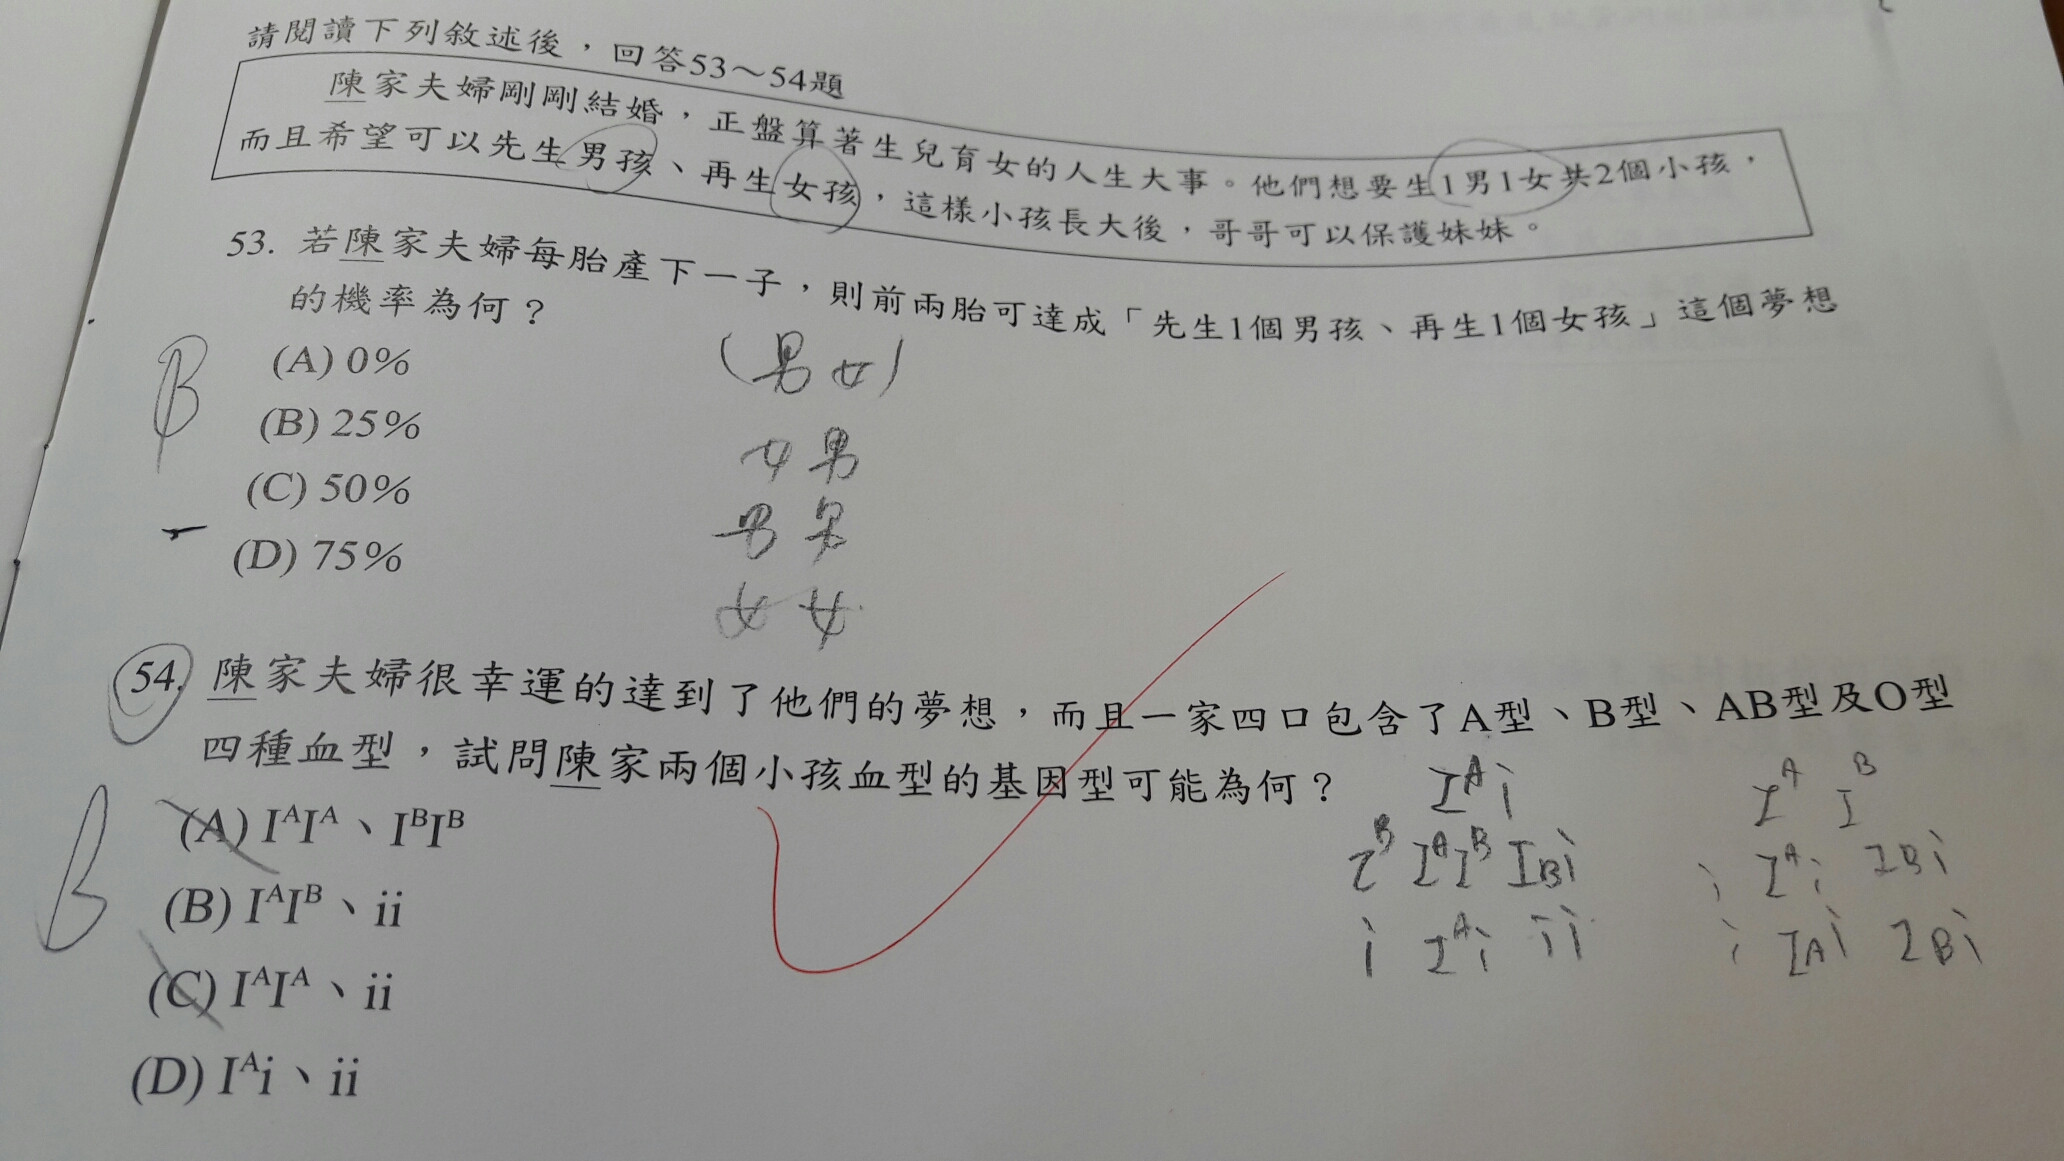 請閱讀下列敘述後，回答53～54題
陳家夫婦剛剛結婚，正盤算著生兒育女的人生大事。他們想要生1男1女共2個小孩，
而且希望可以先生男孩、再生女孩，這樣小孩長大後，哥哥可以保護妹妹。
53. 若陳家夫婦每胎產下一子，則前兩胎可達成「先生1個男孩、再生1個女孩」這個夢想
的機率為何？
B
(A) 0%
(B) 25%
(C) 50%
(D) 75%
(男女)
女男
男男
女女
54. 陳家夫婦很幸運的達到了他們的夢想，而且一家四口包含了A型、B型、AB型及O型
四種血型，試問陳家兩個小孩血型的基因型可能為何？
B
(A) IᴬIᴬ、IᴮIᴮ
(B) IᴬIᴮ、ii
(C) IᴬIᴬ、ii
(D) Iᴬi、ii
Iᴬ i
Iᴮ IᴬIᴮ IBi
i Iᴬi ii
Iᴬ Iᴮ
i Iᴬi IBi
i IAi IBi